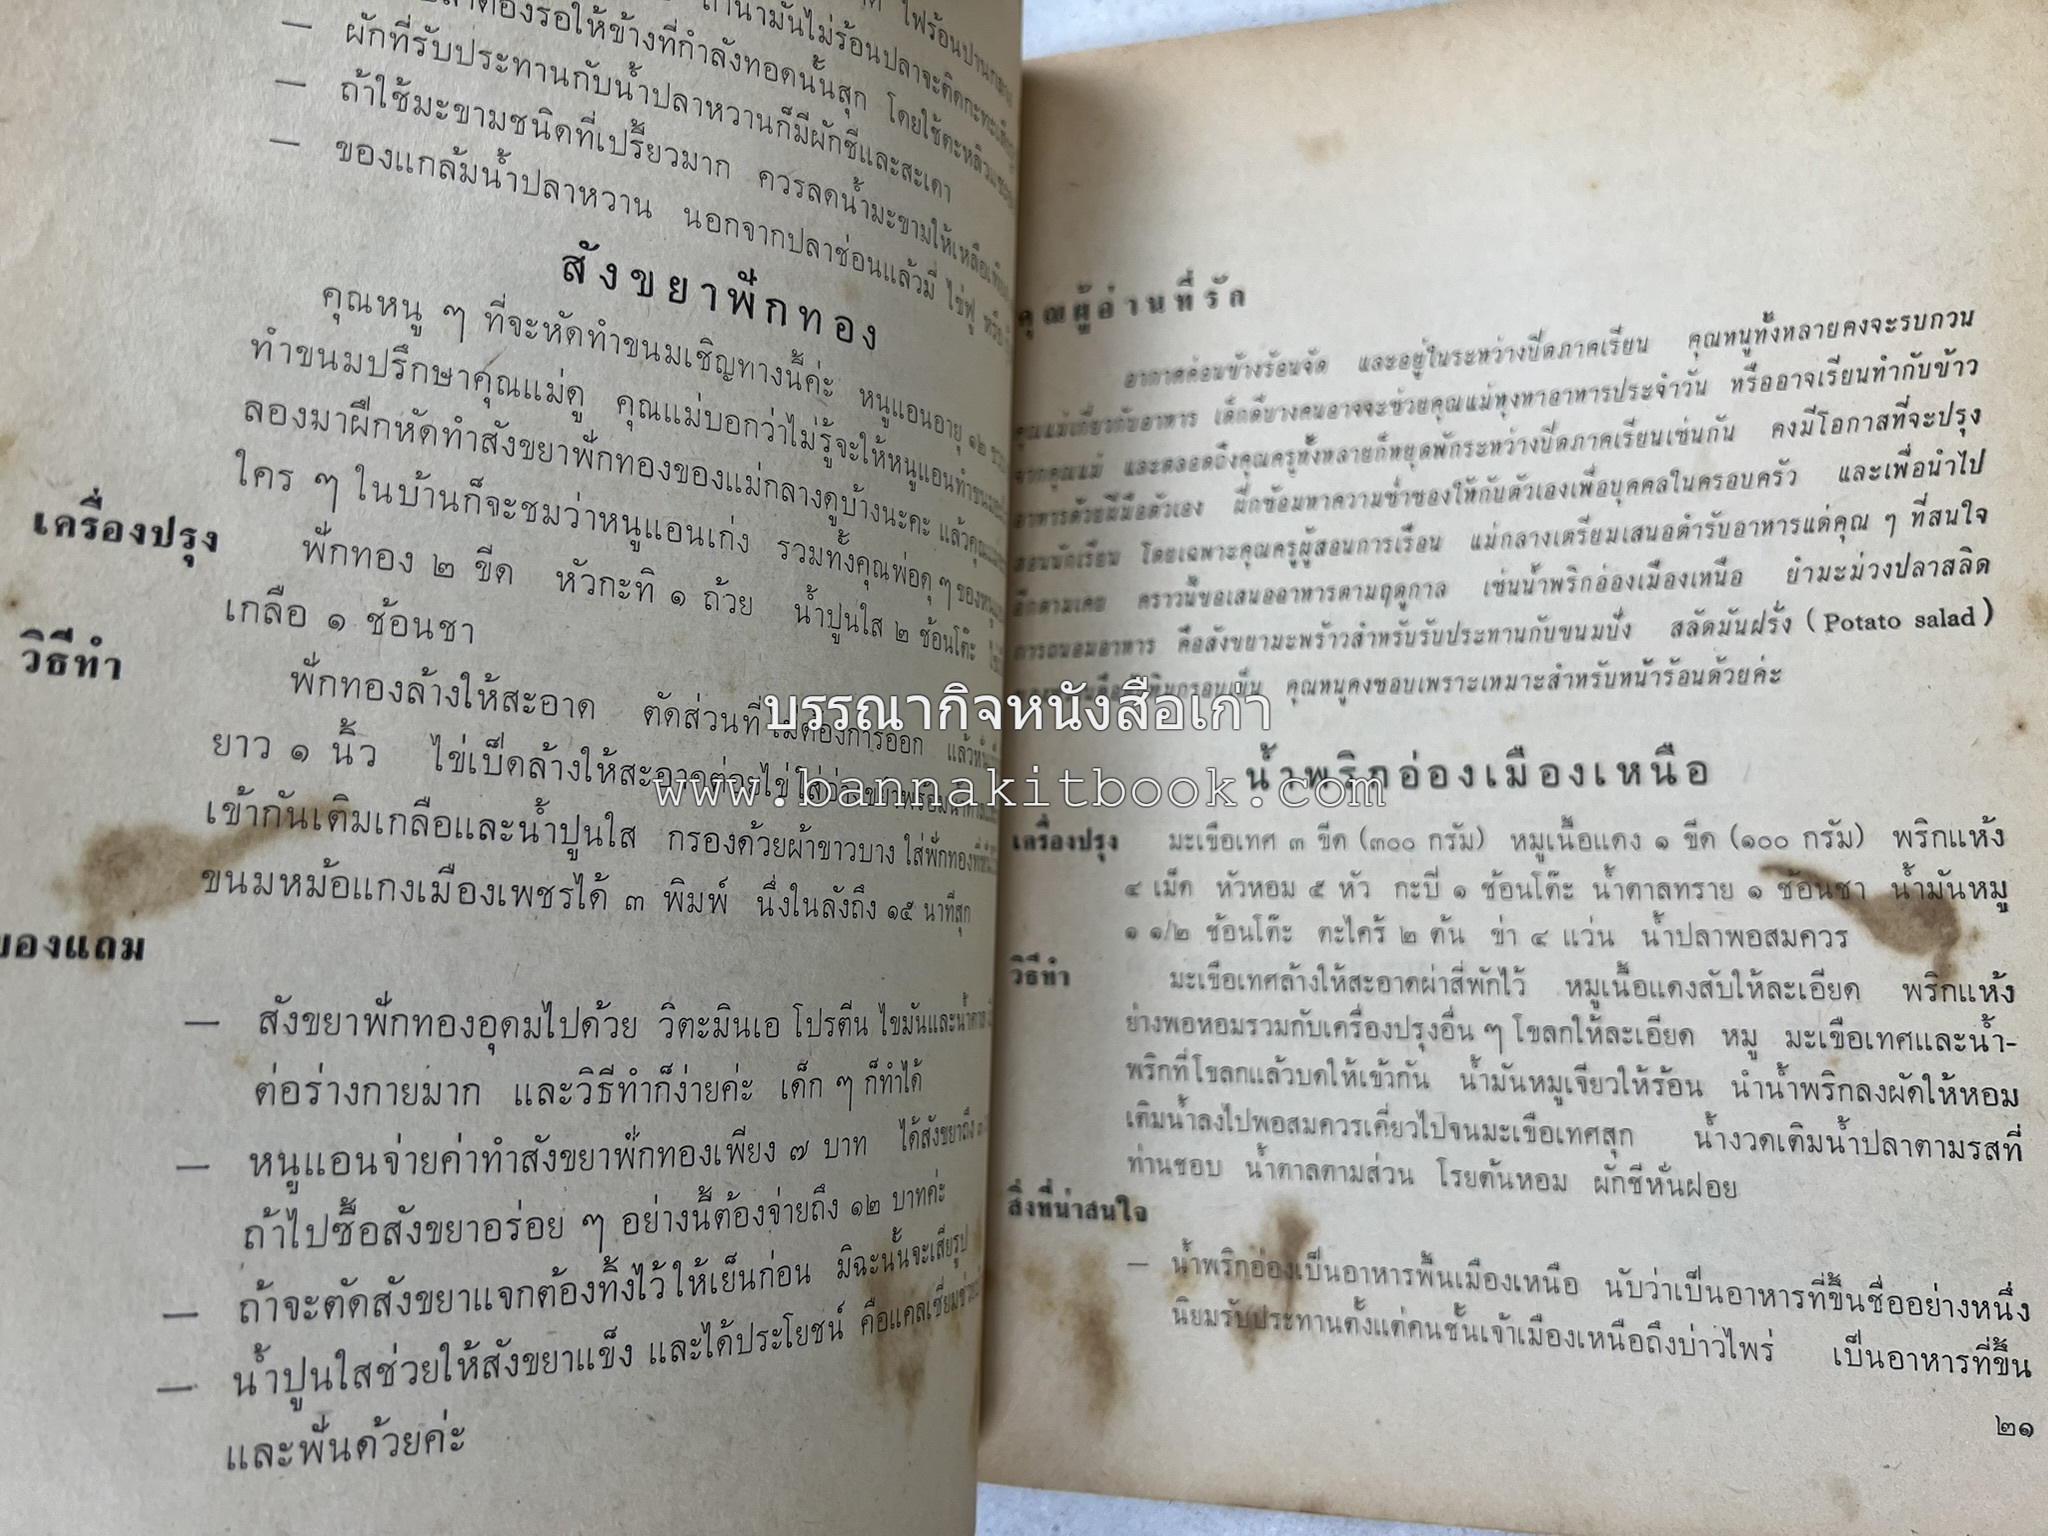 ไฟร้อนปานกลาง
ถ้าน้ำมันไม่ร้อนปลาจะติดกะทะ
ต้องรอให้ข้างที่กำลังทอดนั้นสุก โดยใช้ตะหลิว
— ผักที่รับประทานกับน้ำปลาหวานก็มีผักชีและสะเดา
— ถ้าใช้มะขามชนิดที่เปรี้ยวมาก ควรลดน้ำมะขามให้เหลือเพียง
— ของแกล้มน้ำปลาหวาน นอกจากปลาช่อนแล้วมี ไข่ฟู หรือ
สังขยาฟักทอง
คุณหนู ๆ ที่จะหัดทำขนมเชิญทางนี้ค่ะ หนูแอนอายุ ๑๒ ขวบ
ทำขนมปรึกษาคุณแม่ดู คุณแม่บอกว่าไม่รู้จะให้หนูแอนทำขนมอะไร
ลองมาฝึกหัดทำสังขยาฟักทองของแม่กลางดูบ้างนะคะ แล้วคุณแม่
ใคร ๆ ในบ้านก็จะชมว่าหนูแอนเก่ง รวมทั้งคุณพ่อดุ ๆ ของหนูแอน
เครื่องปรุง ฟักทอง ๒ ขีด หัวกะทิ ๑ ถ้วย น้ำปูนใส ๒ ช้อนโต๊ะ
เกลือ ๑ ช้อนชา
วิธีทำ ฟักทองล้างให้สะอาด ตัดส่วนที่ไม่ต้องการออก แล้วหั่น
ยาว ๑ นิ้ว ไข่เป็ดล้างให้สะอาดต่อยไข่ใส่
เข้ากันเติมเกลือและน้ำปูนใส กรองด้วยผ้าขาวบาง ใส่ฟักทองที่หั่นไว้
ขนมหม้อแกงเมืองเพชรได้ ๓ พิมพ์ นึ่งในลังถึง ๑๕ นาทีสุก
ของแถม
— สังขยาฟักทองอุดมไปด้วย วิตะมินเอ โปรตีน ไขมันและน้ำตาล
ต่อร่างกายมาก และวิธีทำก็ง่ายค่ะ เด็ก ๆ ก็ทำได้
— หนูแอนจ่ายค่าทำสังขยาฟักทองเพียง ๗ บาท ได้สังขยาถึง ๓
ถ้าไปซื้อสังขยาอร่อย ๆ อย่างนี้ต้องจ่ายถึง ๑๒ บาทค่ะ
— ถ้าจะตัดสังขยาแจกต้องทิ้งไว้ให้เย็นก่อน มิฉะนั้นจะเสียรูป
— น้ำปูนใสช่วยให้สังขยาแข็ง และได้ประโยชน์ คือแคลเซียมช่วย
และฟันด้วยค่ะ
คุณผู้อ่านที่รัก
อากาศค่อนข้างร้อนจัด และอยู่ในระหว่างปิดภาคเรียน คุณหนูทั้งหลายคงจะรบกวน
คุณแม่เกี่ยวกับอาหาร เด็กดีบางคนอาจจะช่วยคุณแม่หุงหาอาหารประจำวัน หรืออาจเรียนทำกับข้าว
จากคุณแม่ และตลอดถึงคุณครูทั้งหลายก็หยุดพักระหว่างปิดภาคเรียนเช่นกัน คงมีโอกาสที่จะปรุง
อาหารด้วยฝีมือตัวเอง ฝึกซ้อมหาความชำชองให้กับตัวเองเพื่อบุคคลในครอบครัว และเพื่อนำไป
สอนนักเรียน โดยเฉพาะคุณครูผู้สอนการเรือน แม่กลางเตรียมเสนอตำรับอาหารแด่คุณ ๆ ที่สนใจ
อีกตามเคย คราวนี้ขอเสนออาหารตามฤดูกาล เช่นน้ำพริกอ่องเมืองเหนือ ยำมะม่วงปลาสลิด
การถนอมอาหาร คือสังขยามะพร้าวสำหรับรับประทานกับขนมปัง สลัดมันฝรั่ง ( Potato salad )
กรอบเย็น คุณหนูคงชอบเพราะเหมาะสำหรับหน้าร้อนด้วยค่ะ
บรรณากิจหนังสือเก่า
www.bannakitbook.com
น้ำพริกอ่องเมืองเหนือ
เครื่องปรุง มะเขือเทศ ๓ ขีด (๓๐๐ กรัม) หมูเนื้อแดง ๑ ขีด (๑๐๐ กรัม) พริกแห้ง
๔ เม็ด หัวหอม ๕ หัว กะปิ ๑ ช้อนโต๊ะ น้ำตาลทราย ๑ ช้อนชา น้ำมันหมู
๑ ๑/๒ ช้อนโต๊ะ ตะไคร้ ๒ ต้น ข่า ๔ แว่น น้ำปลาพอสมควร
วิธีทำ มะเขือเทศล้างให้สะอาดผ่าสี่พักไว้ หมูเนื้อแดงสับให้ละเอียด พริกแห้ง
ย่างพอหอมรวมกับเครื่องปรุงอื่น ๆ โขลกให้ละเอียด หมู มะเขือเทศและน้ำ-
พริกที่โขลกแล้วบดให้เข้ากัน น้ำมันหมูเจียวให้ร้อน นำน้ำพริกลงผัดให้หอม
เติมน้ำลงไปพอสมควรเคี่ยวไปจนมะเขือเทศสุก น้ำงวดเติมน้ำปลาตามรสที่
ท่านชอบ น้ำตาลตามส่วน โรยต้นหอม ผักชีหั่นฝอย
สิ่งที่น่าสนใจ
— น้ำพริกอ่องเป็นอาหารพื้นเมืองเหนือ นับว่าเป็นอาหารที่ขึ้นชื่ออย่างหนึ่ง
นิยมรับประทานตั้งแต่คนชั้นเจ้าเมืองเหนือถึงบ่าวไพร่ เป็นอาหารที่ขึ้น
๒๑